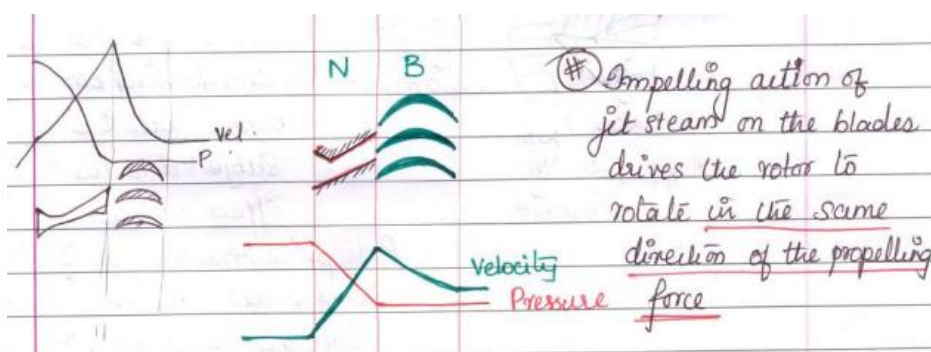 Vel.
P.
N B
Velocity
Pressure
# Impelling action of
jet steam on the blades
drives the rotor to
rotate in the same
direction of the propelling
force